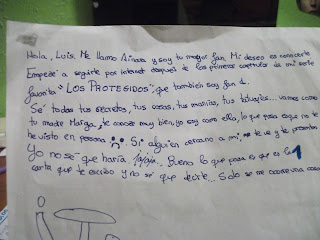 Hola, Luis. Me llamo Ainara y soy tu mayor fan. Mi deseo es conocerte
Empecé a seguirte por internet después de los primeros capítulos de mi serie
favorita "LOS PROTEGIDOS", que también soy fan 1.
Sé todos tus secretos, tus cosas, tus manías, tus tatuajes... vamos como
tu madre Marga, te conoce muy bien, yo soy como ella, lo que pasa es que no te
he visto en persona :( Si alguien cercano a mi te ve y te
Yo no sé que haría jajaja... Bueno lo que pasa es que es la 1
carta que te escribo y no sé que decirte... Solo se me